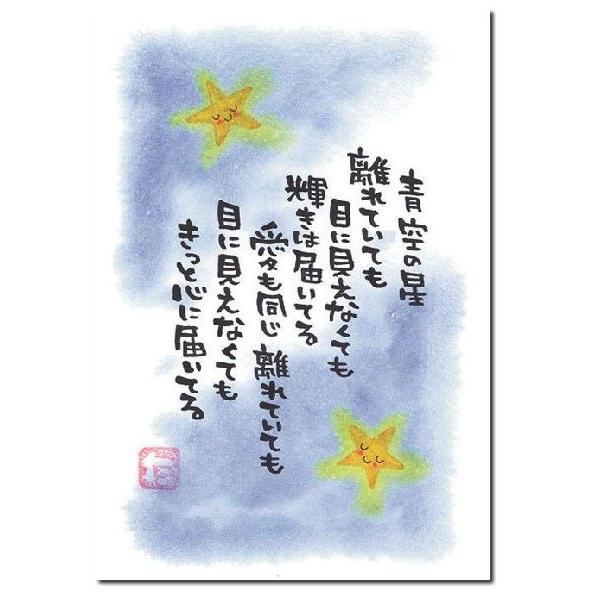 青空の星
離れていても
目に見えなくても
輝きは届いてる
愛も同じ 離れていても
目に見えなくても
きっと心に届いてる